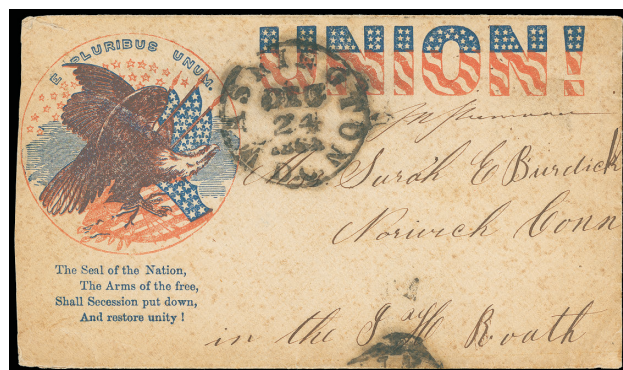 E PLURIBUS UNUM.
UNION!
WASHINGTON
DEC
24
D.C.
Sarah E Burdick
Norwich Conn
The Seal of the Nation,
The Arms of the free,
Shall Secession put down,
And restore unity!
in the J H Roath